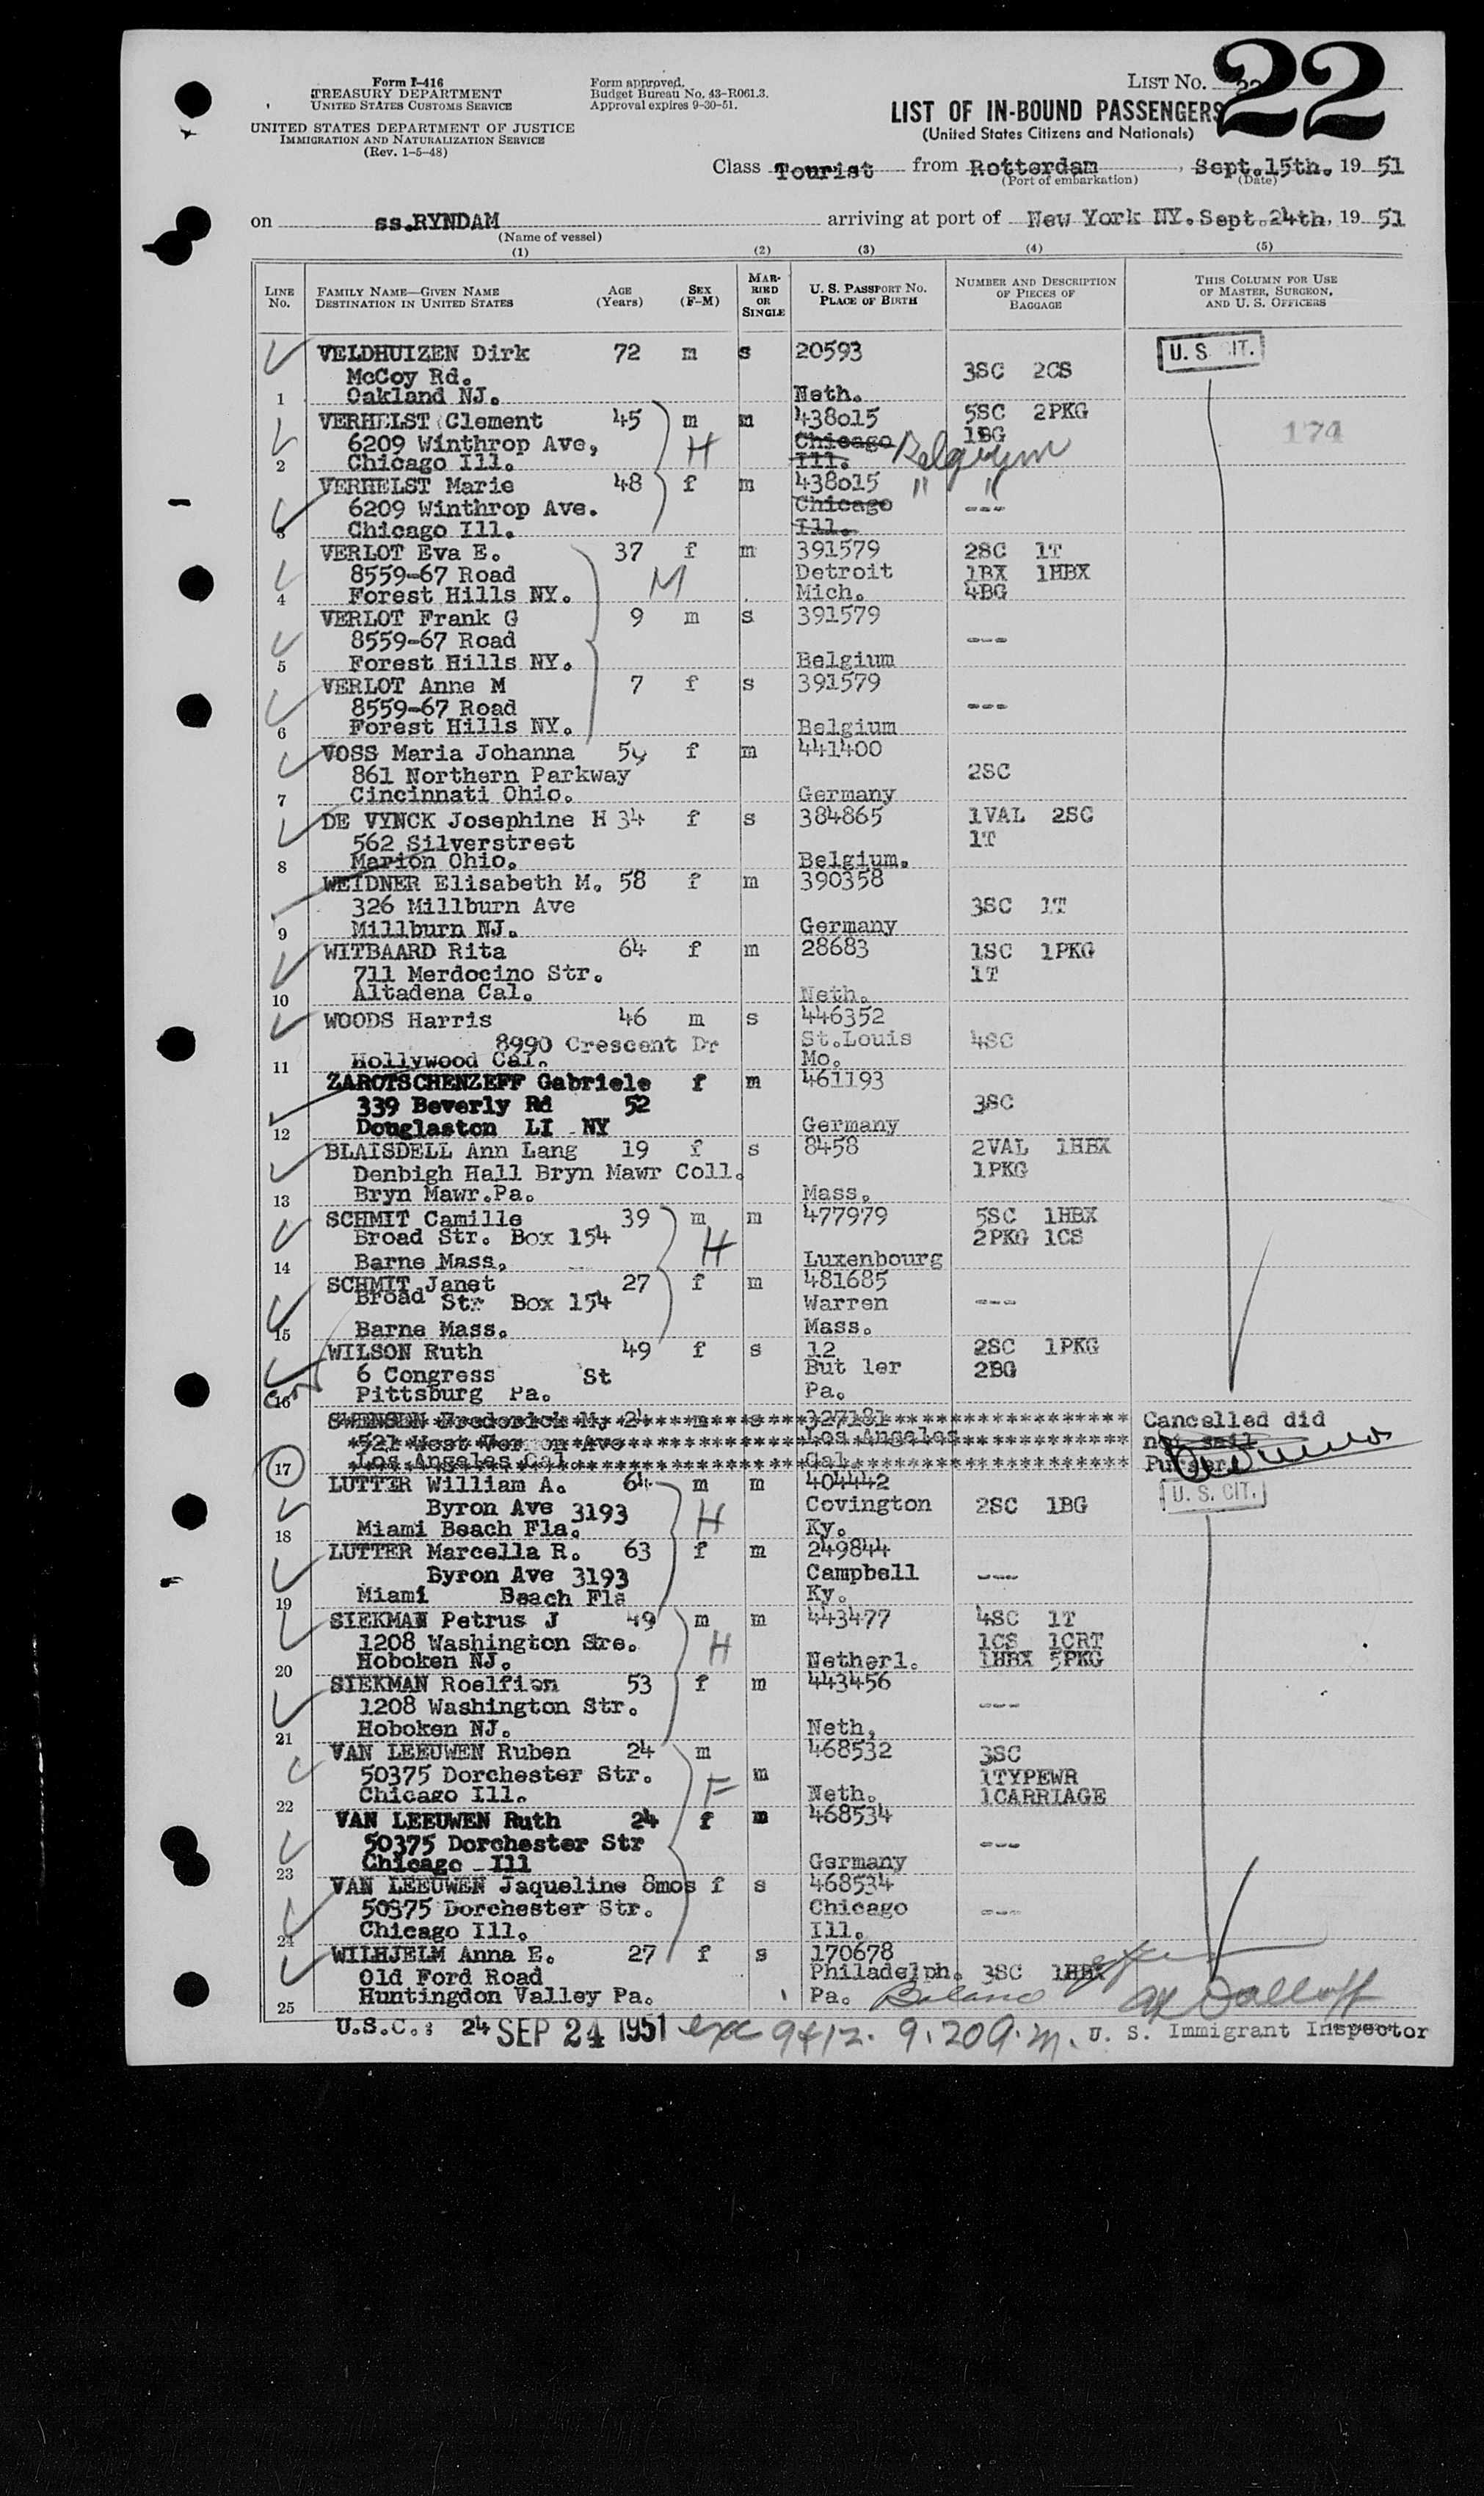 Form I-416
TREASURY DEPARTMENT
UNITED STATES CUSTOMS SERVICE
UNITED STATES DEPARTMENT OF JUSTICE
IMMIGRATION AND NATURALIZATION SERVICE
(Rev. 1-5-48)
Form approved.
Budget Bureau No. 43-R061.3.
Approval expires 9-30-51.
LIST NO. 22
22
LIST OF IN-BOUND PASSENGERS
(United States Citizens and Nationals)
Class Tourist from Rotterdam, Sept.15th. 19 51
(Port of embarkation) (Date)
on ss.RYNDAM arriving at port of New York NY. Sept.24th, 19 51
(Name of vessel)
(1) (2) (3) (4) (5)
LINE NO. FAMILY NAME—GIVEN NAME DESTINATION IN UNITED STATES AGE (Years) SEX (F-M) MARRIED OR SINGLE U. S. PASSPORT NO. PLACE OF BIRTH NUMBER AND DESCRIPTION OF PIECES OF BAGGAGE THIS COLUMN FOR USE OF MASTER, SURGEON, AND U. S. OFFICERS
VELDHUIZEN Dirk 72 m s 20593 U. S. CIT.
McCoy Rd. 3SC 2CS
1 Oakland NJ. Neth.
VERHELST Clement 45 m m 438015 5SC 2PKG
6209 Winthrop Ave, H Chicago 1BG 174
2 Chicago Ill. Ill. Belgium
VERHELST Marie 48 f m 438015 " "
6209 Winthrop Ave. Chicago ---
3 Chicago Ill. Ill.
VERLOT Eva E. 37 f m 391579 2SC 1T
8559-67 Road M Detroit 1BX 1HBX
4 Forest Hills NY. Mich. 4BG
VERLOT Frank G 9 m s 391579
8559-67 Road ---
5 Forest Hills NY. Belgium
VERLOT Anne M 7 f s 391579
8559-67 Road ---
6 Forest Hills NY. Belgium
VOSS Maria Johanna 54 f m 441400
861 Northern Parkway 2SC
7 Cincinnati Ohio. Germany
DE VYNCK Josephine H 34 f s 384865 1VAL 2SC
562 Silverstreet 1T
8 Marion Ohio. Belgium.
WEIDNER Elisabeth M. 58 f m 390358
326 Millburn Ave 3SC 1T
9 Millburn NJ. Germany
WITBAARD Rita 64 f m 28683 1SC 1PKG
711 Merdocino Str. 1T
10 Altadena Cal. Neth.
WOODS Harris 46 m s 446352
8990 Crescent Dr St.Louis 4SC
11 Hollywood Cal. Mo.
ZAROTSCHENZEFF Gabriele f m 461193
339 Beverly Rd 52 3SC
12 Douglaston LI NY Germany
BLAISDELL Ann Lang 19 f s 8458 2VAL 1HBX
Denbigh Hall Bryn Mawr Coll. 1PKG
13 Bryn Mawr.Pa. Mass.
SCHMIT Camille 39 m m 477979 5SC 1HBX
Broad Str. Box 154 H 2PKG 1CS
14 Barne Mass, Luxenbourg
SCHMIT Janet 27 f m 481685
Broad Str Box 154 Warren ---
15 Barne Mass. Mass.
WILSON Ruth 49 f s 12 2SC 1PKG
6 Congress St But ler 2BG
16 Pittsburg Pa. Pa.
SWENSEN Frederick M. 24 m s 327181 Cancelled did
521 West Vernon Ave Los Angeles not sail
17 Los Angeles Cal. Cal. Purser
LUTTER William A. 64 m m 404442 U. S. CIT.
Byron Ave 3193 H Covington 2SC 1BG
18 Miami Beach Fla. Ky.
LUTTER Marcella R. 63 f m 249844
Byron Ave 3193 Campbell ---
19 Miami Beach Fla Ky.
SIEKMAN Petrus J 49 m m 443477 4SC 1T
1208 Washington Stre. H 1CS 1CRT
20 Hoboken NJ. Netherl. 1HBX 5PKG
SIEKMAN Roelfien 53 f m 443456
1208 Washington Str. ---
21 Hoboken NJ. Neth,
VAN LEEUWEN Ruben 24 m 468532 3SC
50375 Dorchester Str. F m 1TYPEWR
22 Chicago Ill. Neth. 1CARRIAGE
VAN LEEUWEN Ruth 24 f m 468534
50375 Dorchester Str ---
23 Chicago Ill Germany
VAN LEEUWEN Jaqueline 8mos f s 468534
50375 Dorchester Str. Chicago ---
24 Chicago Ill. Ill.
WILHJELM Anna E. 27 f s 170678
Old Ford Road Philadelph. 3SC 1HBX
25 Huntingdon Valley Pa. Pa.
U.S.C.: 24 SEP 24 1951 exc 9+12. 9.20 a.m. U. S. Immigrant Inspector